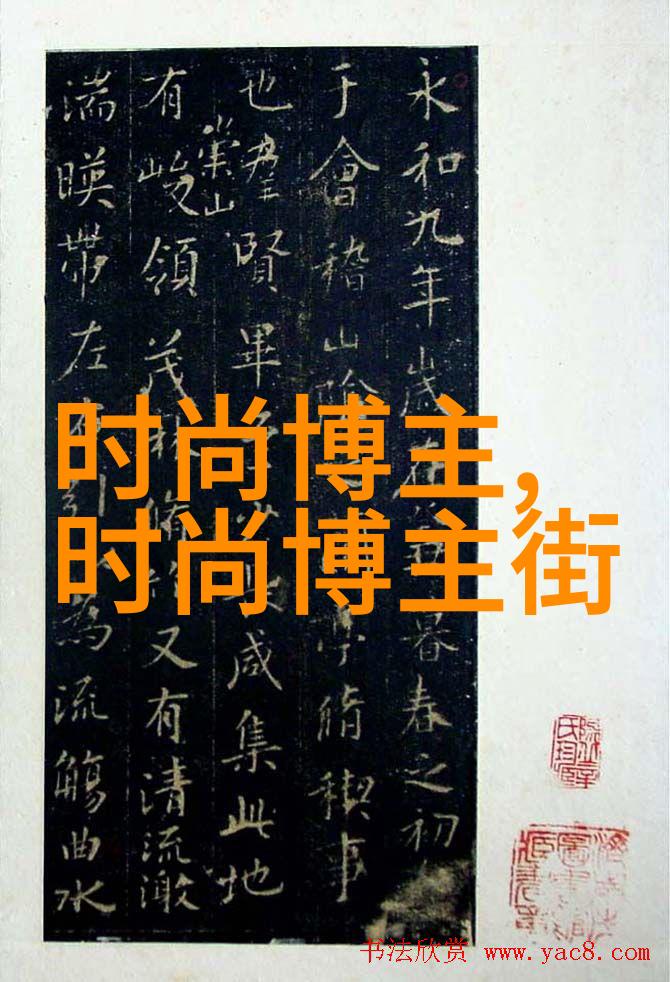 永和九年歲在暮春之初
于會稽山陰亭脩禊事
也羣賢畢至咸集此地
有崇山峻領茂林脩又有清流激
湍暎帶左右引為流觴曲水
时尚博主,
时尚博主街
书法欣赏 www.yac8.com